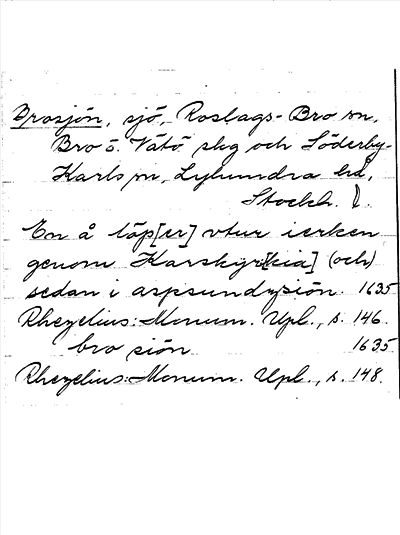 Brosjön, sjö, Roslags-Bro sn,
Bro o. Vätö skg och Söderby-
Karls sn, Lyhundra hd,
Stockh. l.
En å löp[er] vtur ierken
genom Karskyr[kia] (och)
sedan i aspsundzsiön. 1635
Rhezelius: Monum. Upl., s. 146.
bro siön 1635.
Rhezelius: Monum. Upl., s. 148.